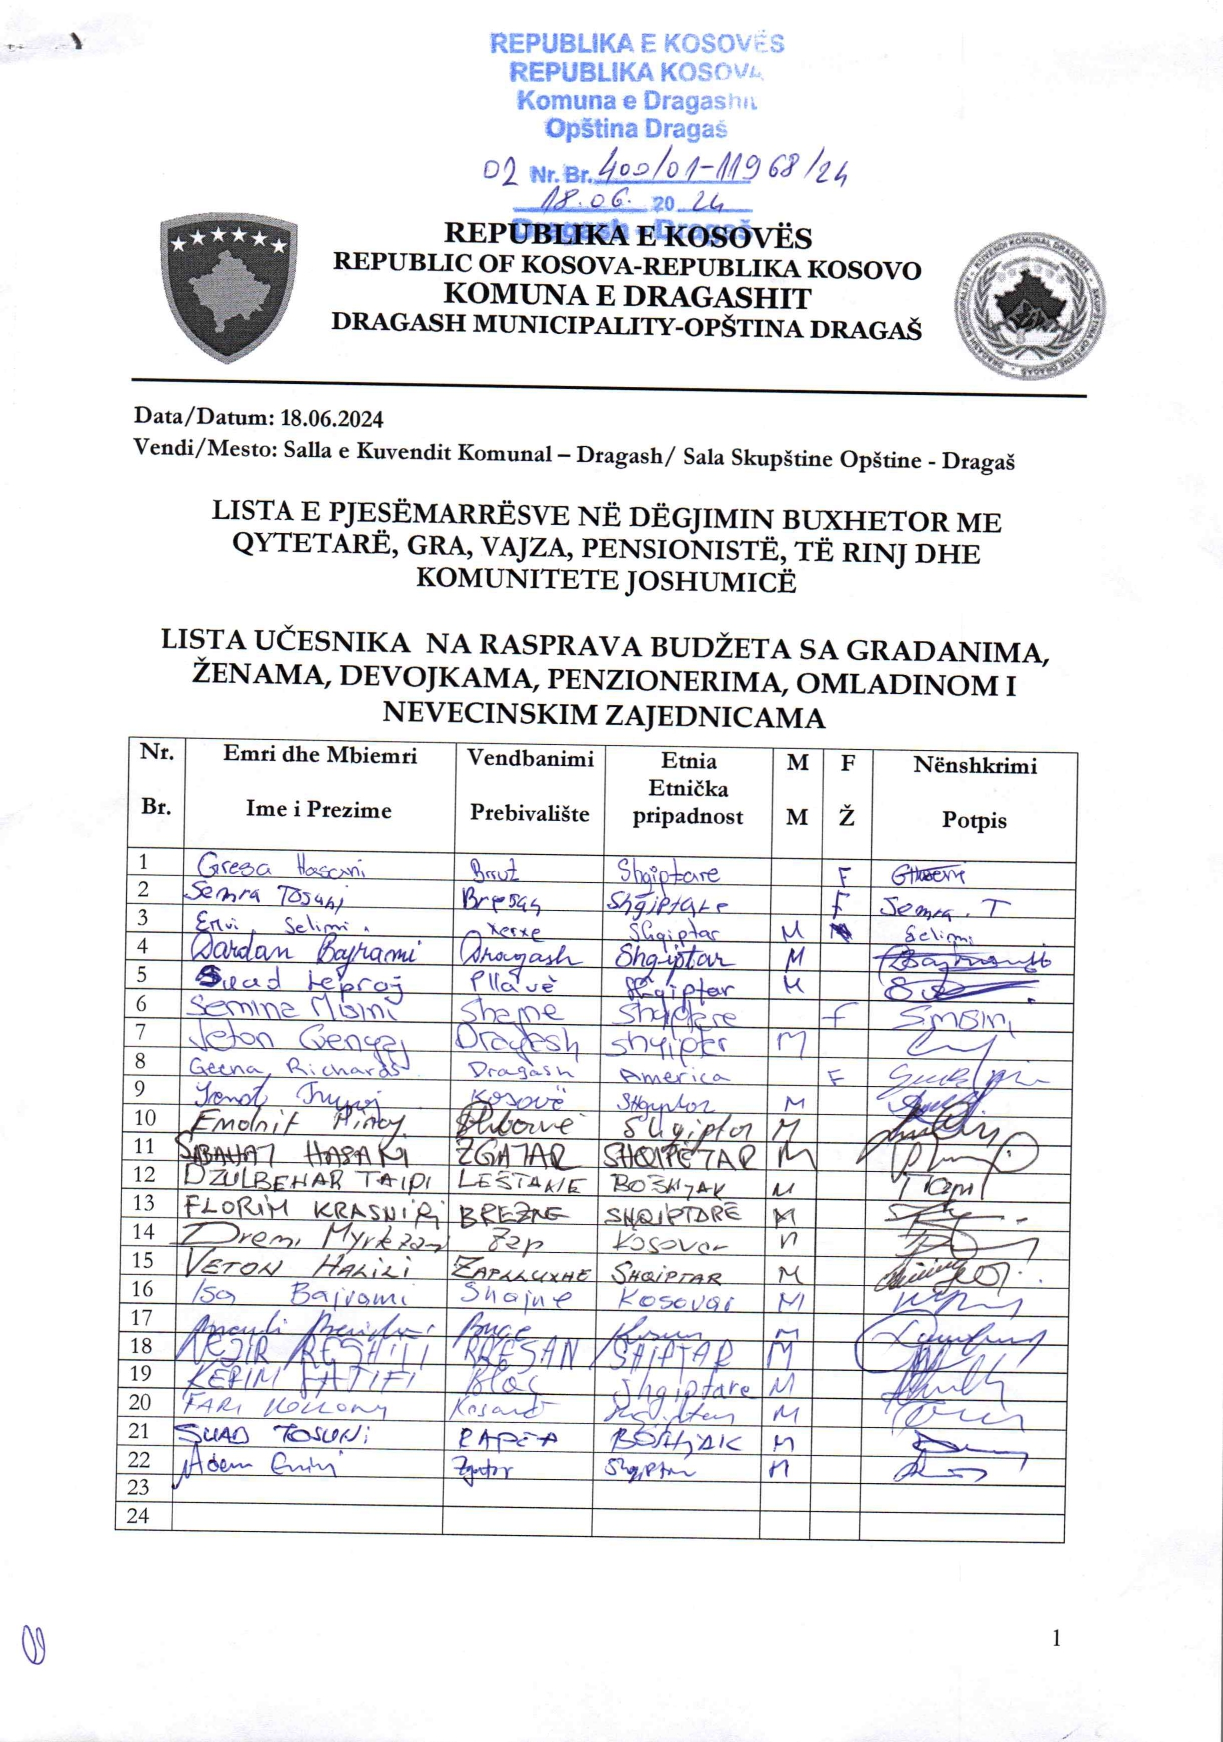 REPUBLIKA E KOSOVËS
REPUBLIKA KOSOVA
Komuna e Dragashit
Opština Dragaš
02 Nr. Br. 400/01-11968/24
18.06. 20 24
Dragash - Dragaš
REPUBLIKA E KOSOVËS
REPUBLIC OF KOSOVA-REPUBLIKA KOSOVO
KOMUNA E DRAGASHIT
DRAGASH MUNICIPALITY-OPŠTINA DRAGAŠ
Data/Datum: 18.06.2024
Vendi/Mesto: Salla e Kuvendit Komunal – Dragash/ Sala Skupštine Opštine - Dragaš
LISTA E PJESËMARRËSVE NË DËGJIMIN BUXHETOR ME
QYTETARË, GRA, VAJZA, PENSIONISTË, TË RINJ DHE
KOMUNITETE JOSHUMICË
LISTA UČESNIKA NA RASPRAVA BUDŽETA SA GRADANIMA,
ŽENAMA, DEVOJKAMA, PENZIONERIMA, OMLADINOM I
NEVECINSKIM ZAJEDNICAMA
Nr. Emri dhe Mbiemri Vendbanimi Etnia M F Nënshkrimi
Etnička
Br. Ime i Prezime Prebivalište pripadnost M Ž Potpis
1 Gresa Hasani Brrut Shqiptare F
2 Semra Tosuni Bresan Shqiptare F Semra. T
3 Ervi Selimi Xerxe Shqiptar M Selimi
4 Dardan Bajrami Dragash Shqiptar M
5 Suad Leproj Pllavë Shqiptar M
6 Semina Misini Shajne Shqiptare F SMisini
7 Jeton Dragash Shqiptar M
8 Geena Richards Dragash America F
9 Kosovë Shqiptar M
10 Emolnit Shqiptar M
11 SABAHAT HASAKI ZGATAR SHQIPETAR M
12 DZULBEHAR TAIPI LEŠTANE BOŠNJAK M
13 FLORIM KRASNIQI BREZNE SHQIPTARË M
14 Dreni Zap Kosovar M
15 VETON HALILI ZAPLLUXHE SHQIPTAR M
16 Isa Bajrami Shajne Kosovar M
17 M
18 NEZIR RESHITI BRESAN SHQIPTAR M
19 KERIM LATIFI Blaç Shqiptare M
20 M
21 SUAD TOSUNI RAPÇA BOSHJAK M
22 Adem Emini Zgatar Shqiptar M
23
24
1